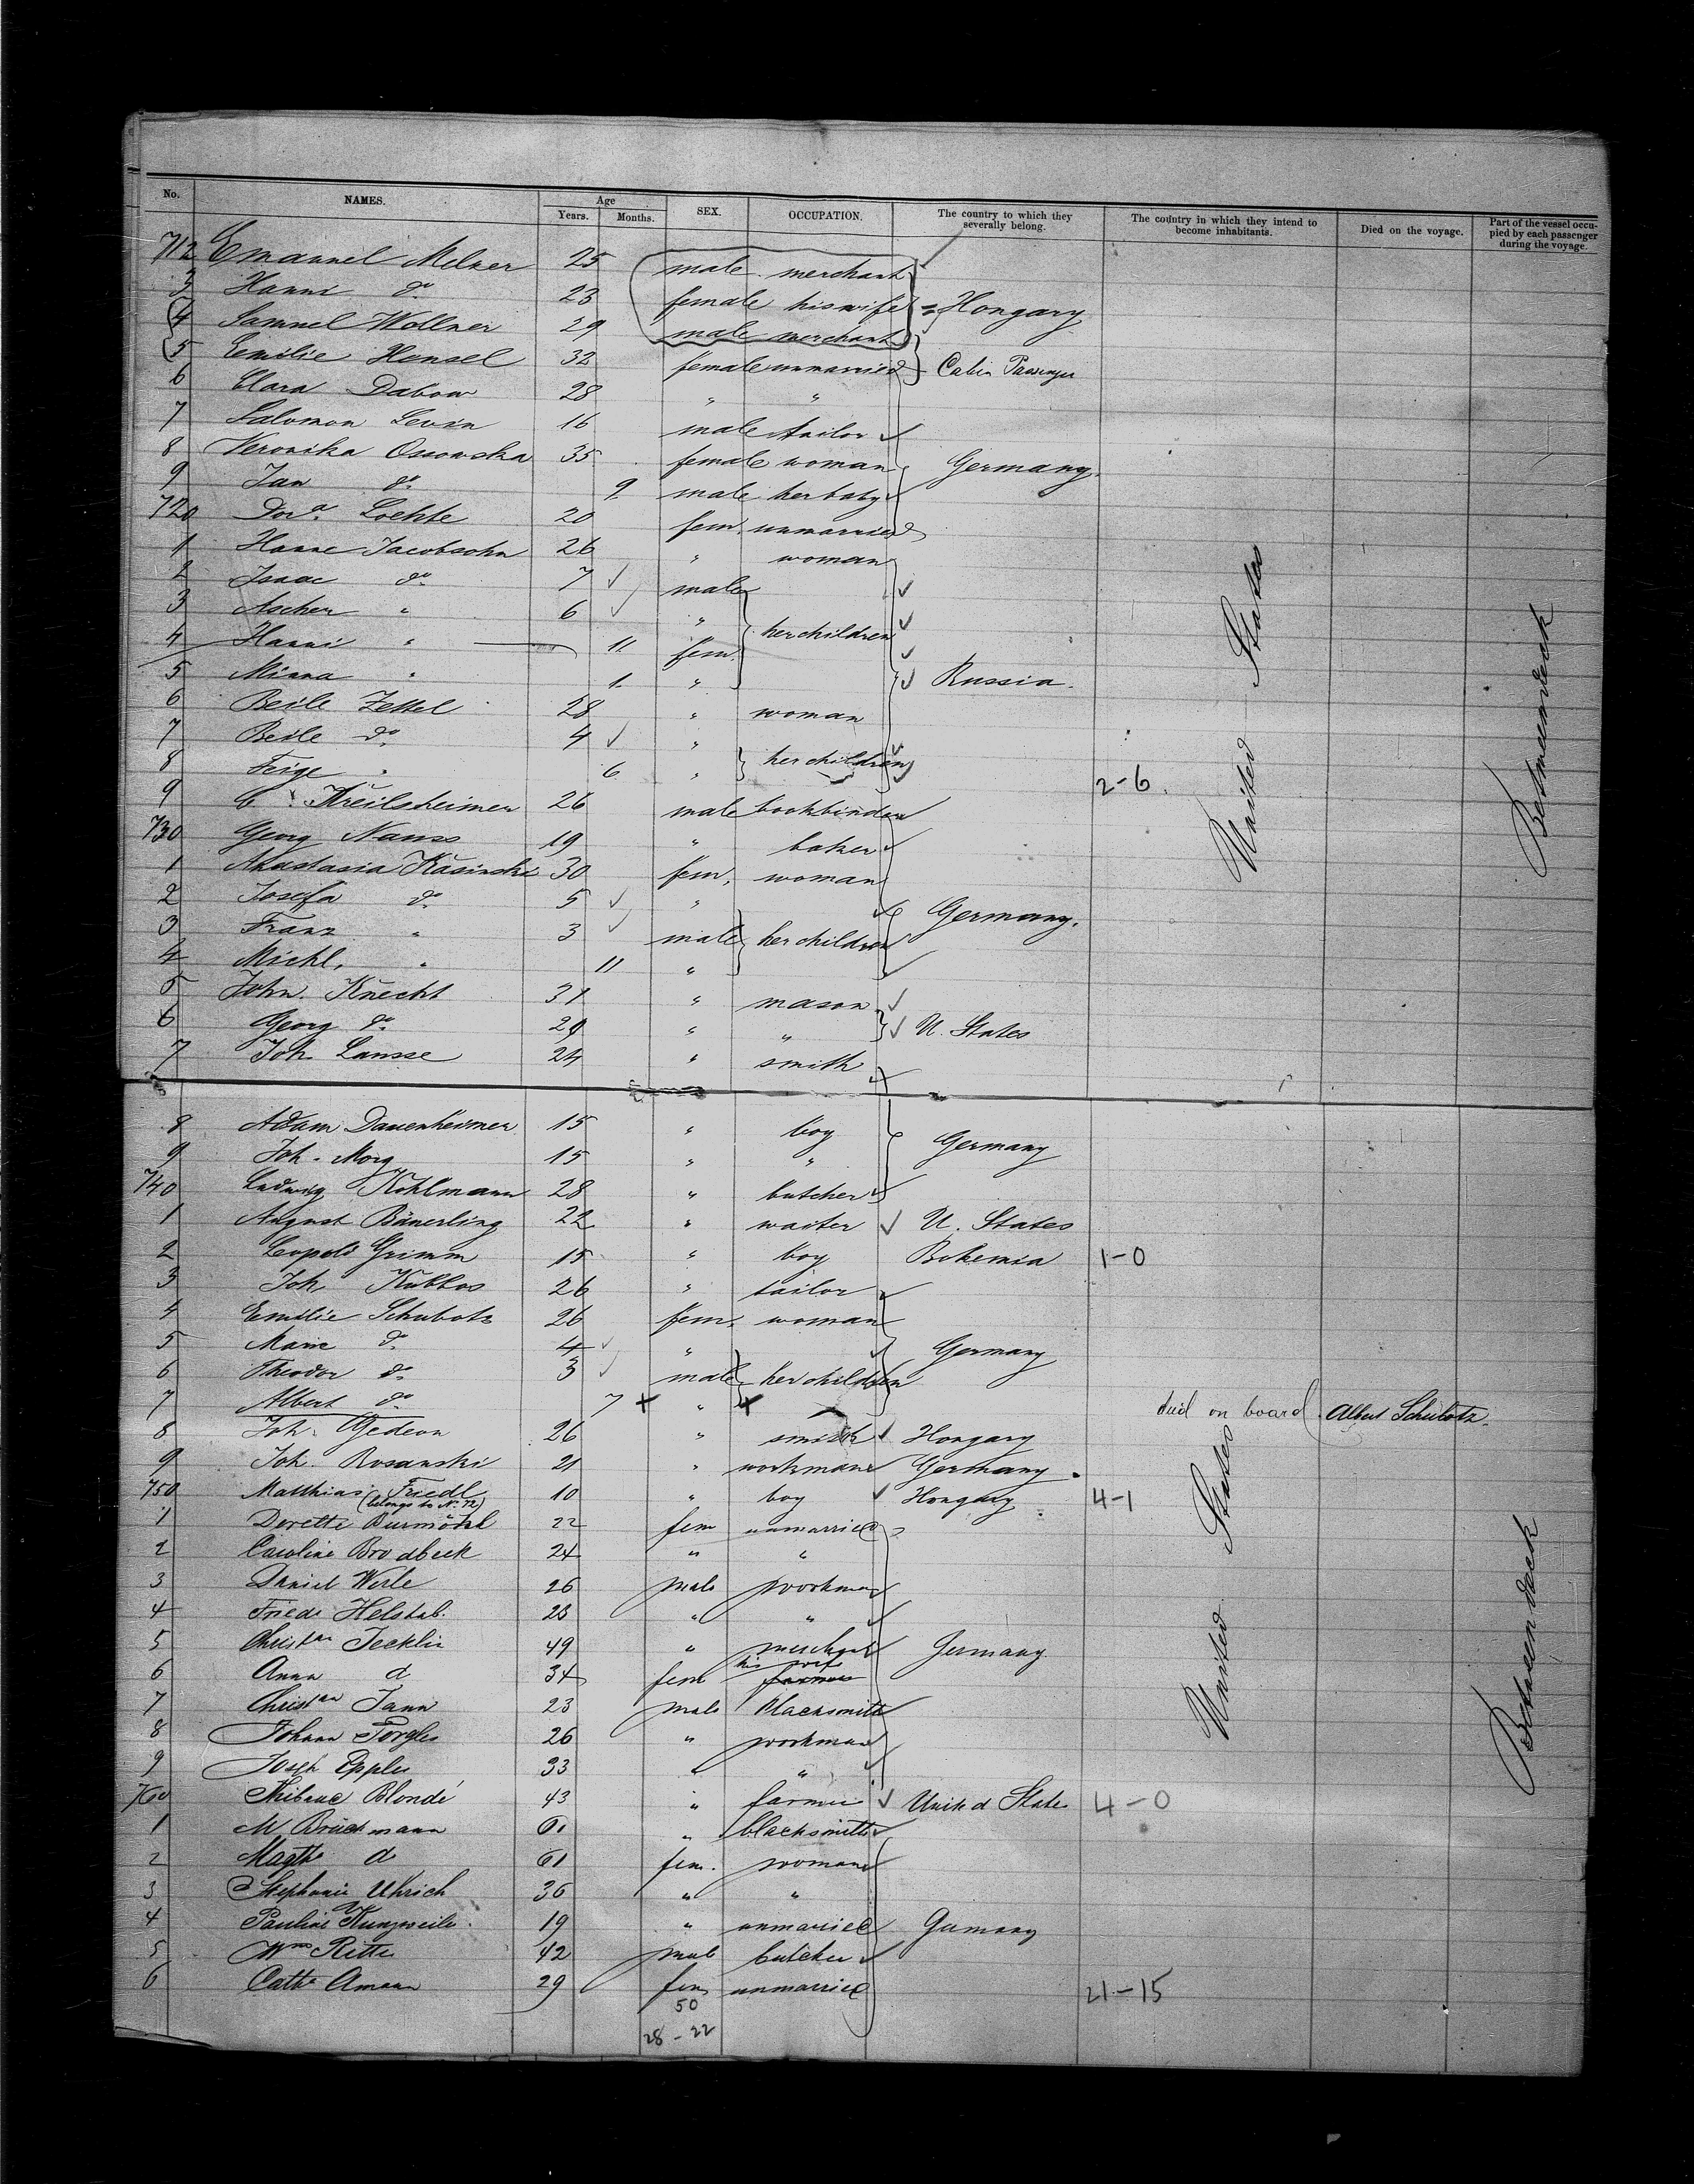 No. NAMES. Age Years. Months. SEX. OCCUPATION. The country to which they severally belong. The country in which they intend to become inhabitants. Died on the voyage. Part of the vessel occupied by each passenger during the voyage.
712 Emanuel Melner 25 male merchant
3 Hanni do 23 female his wife Hongary
4 Samuel Wollner 29 male merchant
5 Emilie Hensel 32 female unmarried Cabin Passenger
6 Clara Dabow 28 " "
7 Salomon Levin 16 male tailor
8 Veronika Ossowska 35 female woman Germany.
9 Jan do 9 male her baby
720 Dora Loehte 20 fem. unmarried
1 Hanne Jacobsohn 26 " woman
2 Isaac do 7 male
3 Ascher " 6 " her children
4 Hanni " 11 fem.
5 Minna " 1 " Russia.
6 Beile Zettel 28 " woman
7 Beile do 4 "
8 Feige " 6 " her children 2-6
9 C. Kreilsheimer 26 male bookbinder
730 Georg Nanss 19 " baker
1 Anastasia Kasinski 30 fem. woman
2 Josefa do 5 " Germany.
3 Franz " 3 male her children
4 Michl. " 11 "
5 John. Knecht 31 " mason
6 Georg do 29 " " U. States
7 Joh. Lansse 24 " smith
United States
Betweendeck
8 Adam Dauenheimer 15 " boy Germany
9 Joh. Morg 15 " "
740 Ludwig Kohlmann 28 " butcher
1 August Bänerling 22 " waiter U. States
2 Leopold Grimm 15 " boy Bohemia 1-0
3 Joh. Kubbos 26 " tailor
4 Emilie Schubotz 26 fem. woman
5 Marie do 4 " Germany
6 Theodor do 3 male her children
7 Albert do 7 " died on board Albert Schubotz.
8 Joh. Gedeon 26 " smith Hongary
9 Joh. Rosanski 21 " workman Germany
750 Matthias Friedl 10 " boy Hongary 4-1
(belongs to No. 72)
1 Dorette Burmöhl 22 fem unmarried
2 Caroline Brodbeck 24 " "
3 Daniel Werle 26 male workman
4 Friedr Helstab. 23 " "
5 Christan Jecklin 49 " merchant Germany
6 Anna d 34 fem his wife farmer
7 Christan Jann 23 male blacksmith
8 Johann Porgles 26 " workman
9 Joseph Epples 33 " "
760 Thibaud Blondé 43 " farmer United State 4-0
1 M Brückmann 61 " blacksmith
2 Magth d 61 fem. woman
3 Stephanie Uhrich 36 " "
4 Pauline Kunzweile. 19 " unmarried Germany
5 Wm Ritte 42 male butcher
6 Cathe Amann 29 fem unmarried 21-15
50
28-22
United States
Betweendeck